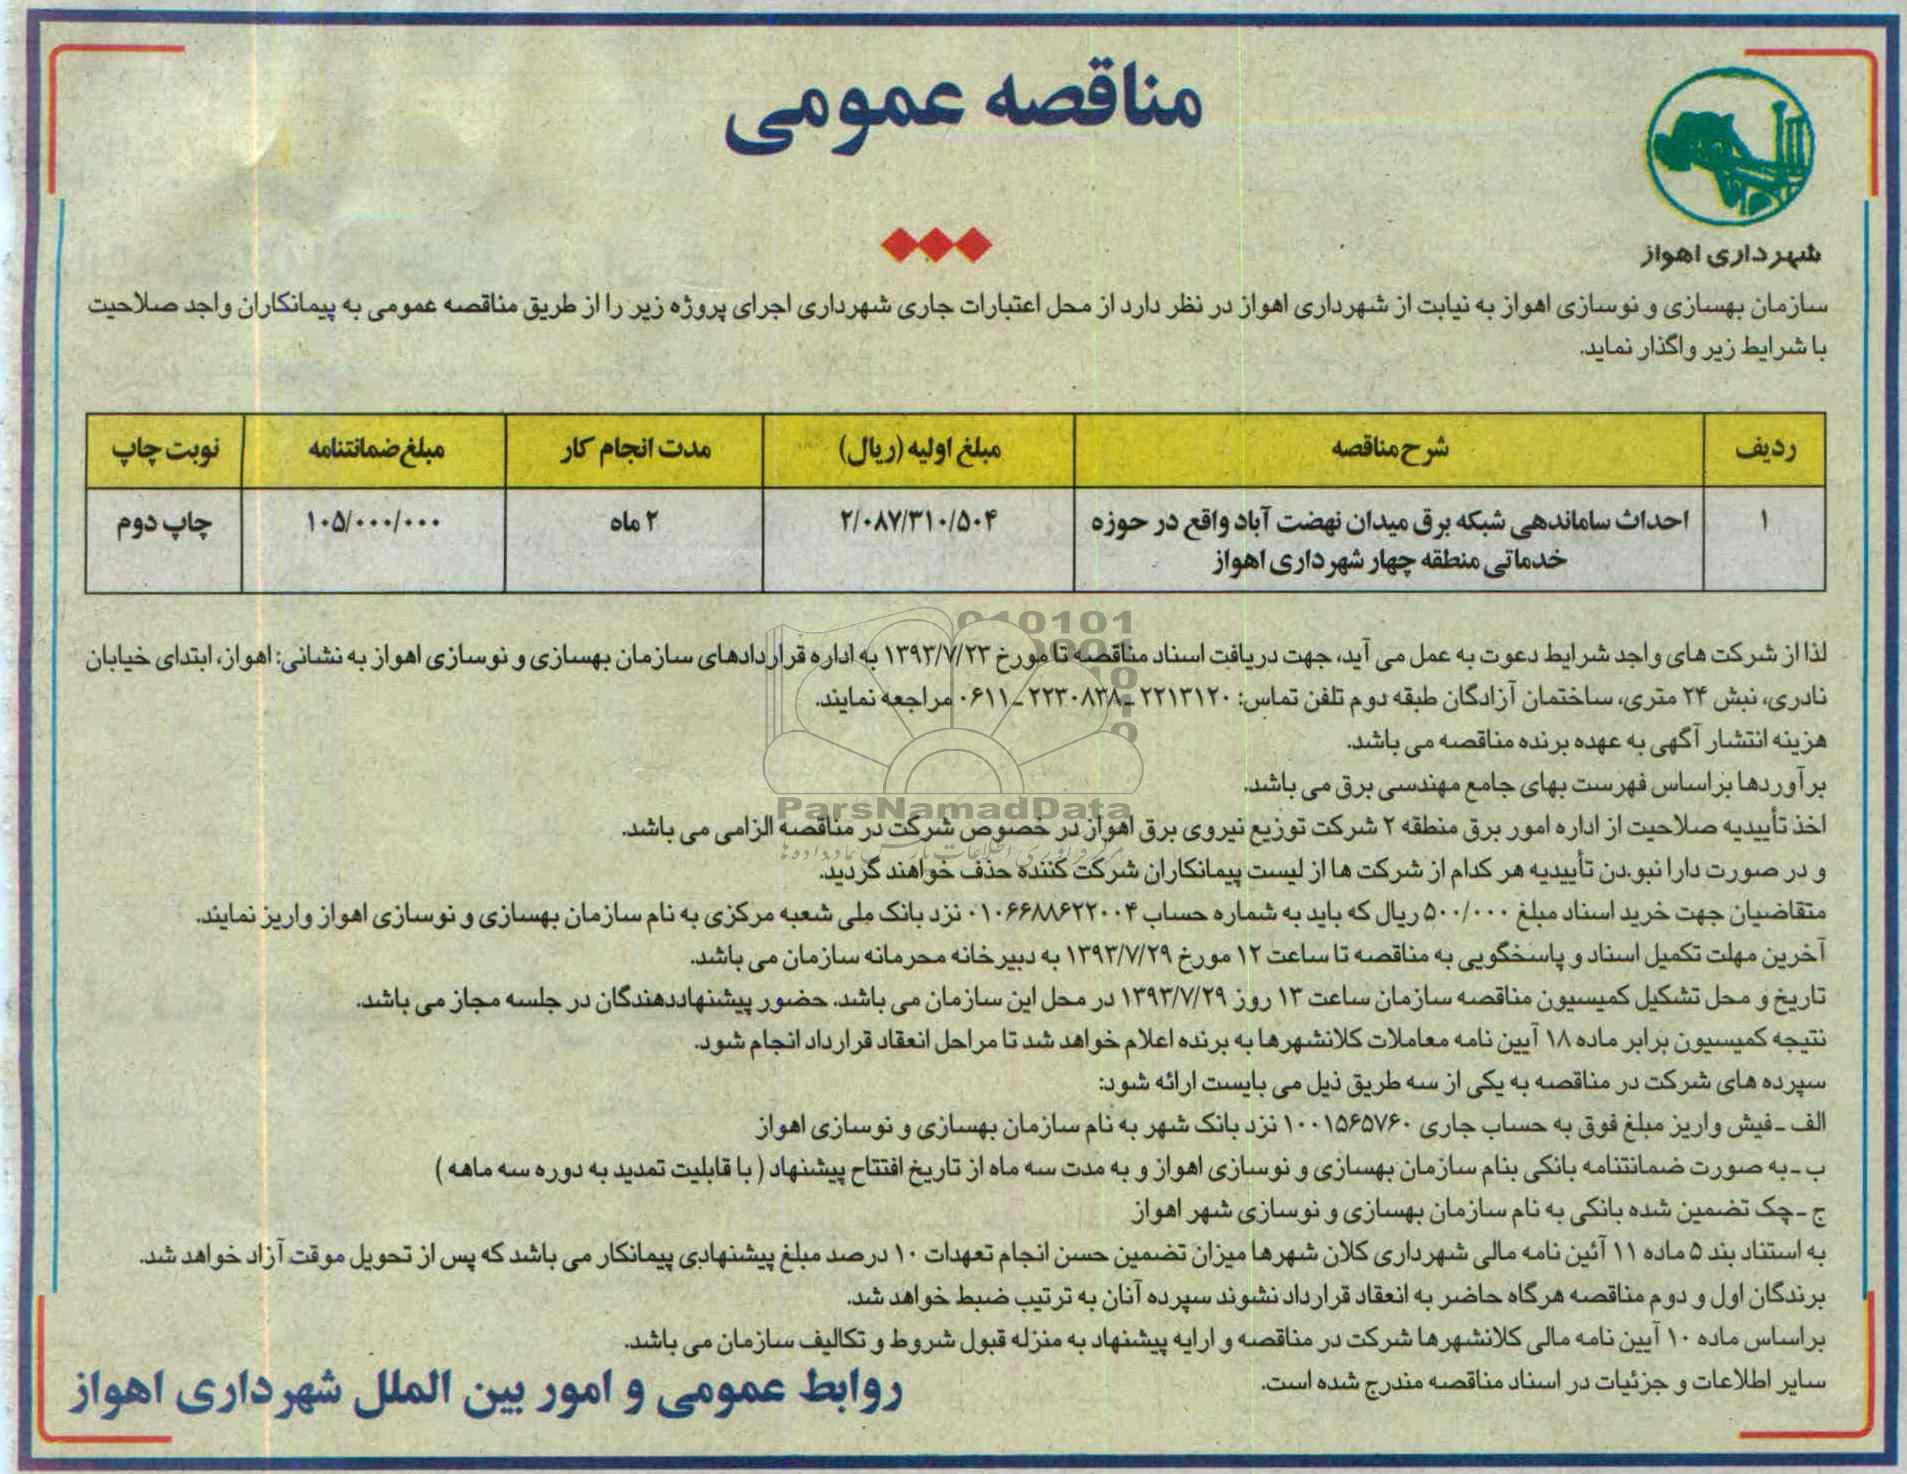 مناقصه عمومی
شهرداری اهواز
سازمان بهسازی و نوسازی اهواز به نیابت از شهرداری اهواز در نظر دارد از محل اعتبارات جاری شهرداری اجرای پروژه زیر را از طریق مناقصه عمومی به پیمانکاران واجد صلاحیت
با شرایط زیر واگذار نماید.
ردیف شرح مناقصه مبلغ اولیه (ریال) مدت انجام کار مبلغ ضمانتنامه نوبت چاپ
۱ احداث ساماندهی شبکه برق میدان نهضت آباد واقع در حوزه ۲/۰۸۷/۳۱۰/۵۰۴ ۲ ماه ۱۰۵/۰۰۰/۰۰۰ چاپ دوم
خدماتی منطقه چهار شهرداری اهواز
لذا از شرکت های واجد شرایط دعوت به عمل می آید، جهت دریافت اسناد مناقصه تا مورخ ۱۳۹۳/۷/۲۳ به اداره قراردادهای سازمان بهسازی و نوسازی اهواز به نشانی: اهواز، ابتدای خیابان
نادری، نبش ۲۴ متری، ساختمان آزادگان طبقه دوم تلفن تماس: ۲۲۱۳۱۲۰ ـ ۲۲۳۰۸۳۸ ـ ۰۶۱۱ مراجعه نمایند.
هزینه انتشار آگهی به عهده برنده مناقصه می باشد.
برآوردها براساس فهرست بهای جامع مهندسی برق می باشد.
ParsNamadData
اخذ تأییدیه صلاحیت از اداره امور برق منطقه ۲ شرکت توزیع نیروی برق اهواز در خصوص شرکت در مناقصه الزامی می باشد.
و در صورت دارا نبو.دن تأییدیه هر کدام از شرکت ها از لیست پیمانکاران شرکت کننده حذف خواهند گردید.
متقاضیان جهت خرید اسناد مبلغ ۵۰۰/۰۰۰ ریال که باید به شماره حساب ۰۱۰۶۶۸۸۶۲۲۰۰۴ نزد بانک ملی شعبه مرکزی به نام سازمان بهسازی و نوسازی اهواز واریز نمایند.
آخرین مهلت تکمیل اسناد و پاسخگویی به مناقصه تا ساعت ۱۲ مورخ ۱۳۹۳/۷/۲۹ به دبیرخانه محرمانه سازمان می باشد.
تاریخ و محل تشکیل کمیسیون مناقصه سازمان ساعت ۱۳ روز ۱۳۹۳/۷/۲۹ در محل این سازمان می باشد. حضور پیشنهاددهندگان در جلسه مجاز می باشد.
نتیجه کمیسیون برابر ماده ۱۸ آیین نامه معاملات کلانشهرها به برنده اعلام خواهد شد تا مراحل انعقاد قرارداد انجام شود.
سپرده های شرکت در مناقصه به یکی از سه طریق ذیل می بایست ارائه شود:
الف ـ فیش واریز مبلغ فوق به حساب جاری ۱۰۰۱۵۶۵۷۶۰ نزد بانک شهر به نام سازمان بهسازی و نوسازی اهواز
ب ـ به صورت ضمانتنامه بانکی بنام سازمان بهسازی و نوسازی اهواز و به مدت سه ماه از تاریخ افتتاح پیشنهاد ( با قابلیت تمدید به دوره سه ماهه )
ج ـ چک تضمین شده بانکی به نام سازمان بهسازی و نوسازی شهر اهواز
به استناد بند ۵ ماده ۱۱ آئین نامه مالی شهرداری کلان شهرها میزان تضمین حسن انجام تعهدات ۱۰ درصد مبلغ پیشنهادی پیمانکار می باشد که پس از تحویل موقت آزاد خواهد شد.
برندگان اول و دوم مناقصه هرگاه حاضر به انعقاد قرارداد نشوند سپرده آنان به ترتیب ضبط خواهد شد.
براساس ماده ۱۰ آیین نامه مالی کلانشهرها شرکت در مناقصه و ارایه پیشنهاد به منزله قبول شروط و تکالیف سازمان می باشد.
سایر اطلاعات و جزئیات در اسناد مناقصه مندرج شده است.
روابط عمومی و امور بین الملل شهرداری اهواز